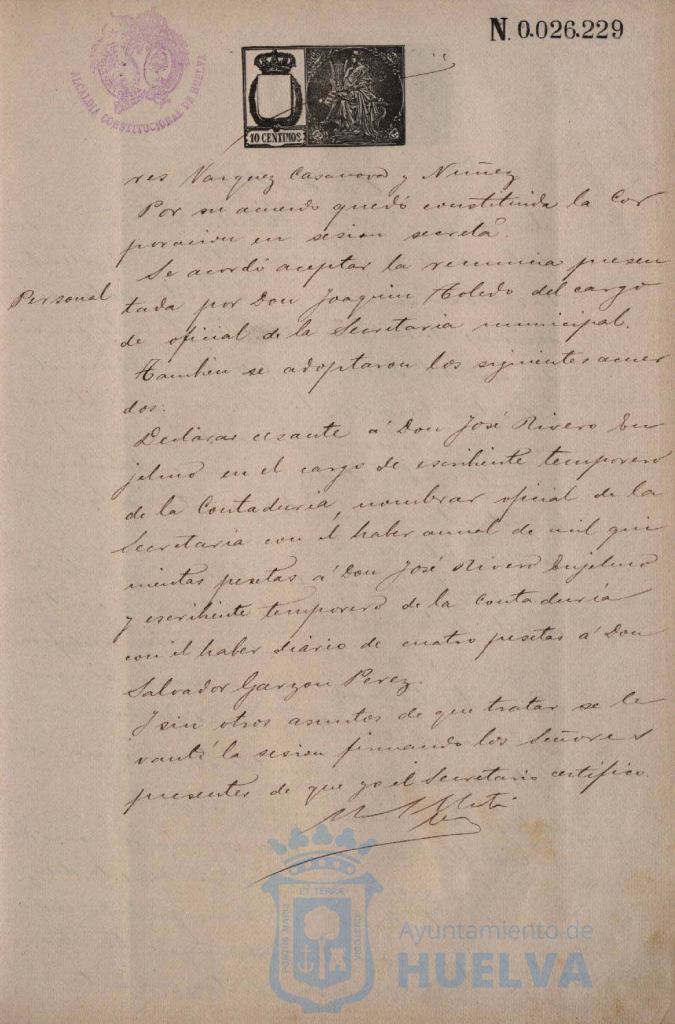 N. 0.026.229
ALCALDIA CONSTITUCIONAL DE HUELVA
10 CENTIMOS
res Vazquez Casanova y Nuñez
Por su acuerdo quedó constituida la Cor
poracion en sesion secreta.
Personal
Se acordó aceptar la renuncia presen
tada por Don Joaquin Toledo del cargo
de oficial de la Secretaria municipal.
Tambien se adoptaron los siguientes acuer
dos:
Declarar cesante á Don José Rivero En
jelmo en el cargo de escribiente temporero
de la Contaduria, nombrar oficial de la
Secretaria con el haber anual de mil qui
nientas pesetas á Don José Rivero Enjelmo
y escribiente temporero de la Contaduría
con el haber diario de cuatro pesetas á Don
Salvador Garzon Perez.
Y sin otros asuntos de que tratar se le
vantó la sesion firmando los Señores
presentes de que yo el Secretario certifico.
PORTUS MARIS
ET TERRÆ
CUSTODIA
Ayuntamiento de
HUELVA